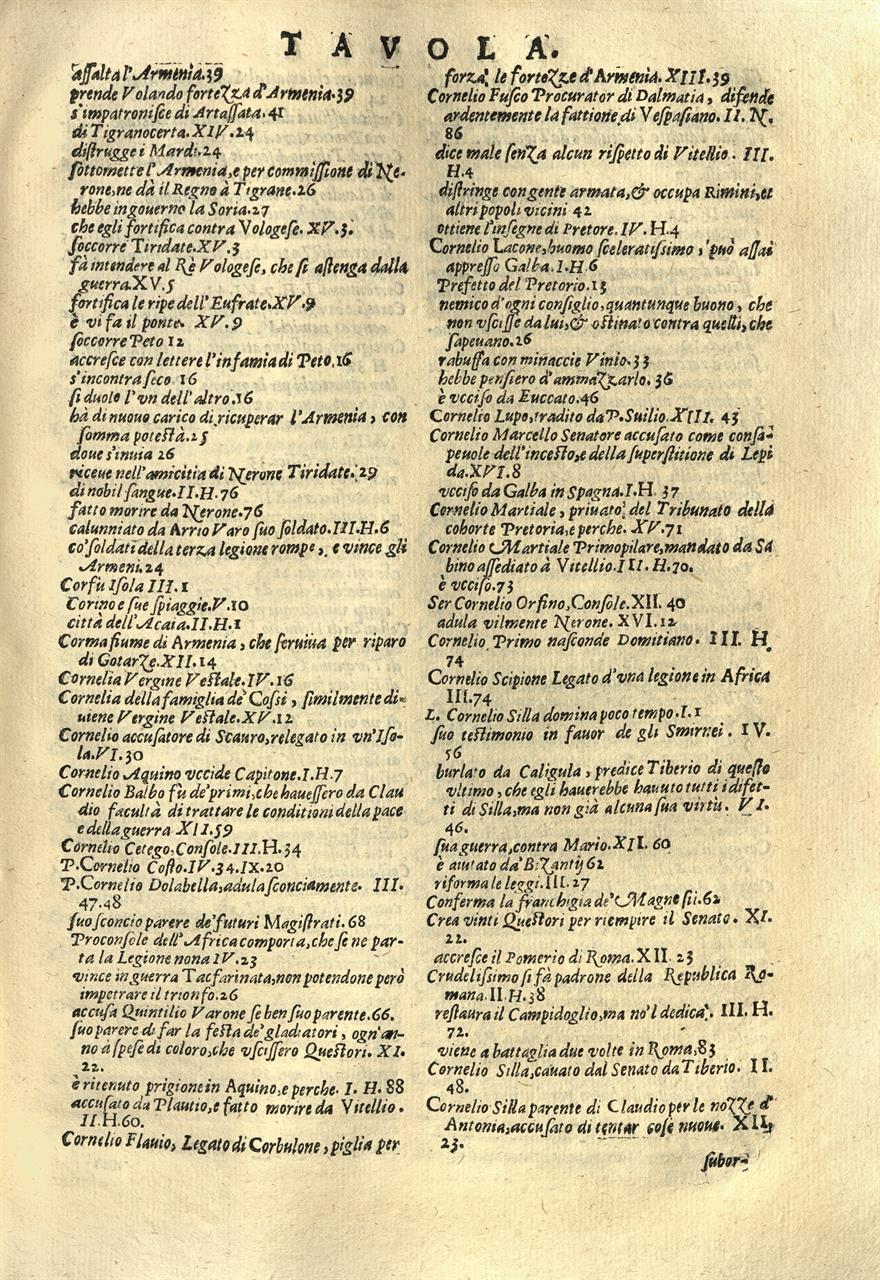 TAVOLA.
assalta l'Armenia.39
prende Volando fortezza d'Armenia.39
s'impatronisce di Artassata.41
di Tigranocerta.XIV.24
distrugge i Mardi.24
sottomette l'Armenia,e per commissione di Ne-
rone,ne dà il Regno à Tigrane.26
hebbe in gouerno la Soria.27
che egli fortifica contra Vologese. XV.3.
soccorre Tiridate.XV.3
fà intendere al Rè Vologese, che si astenga dalla
guerra.XV.5
fortifica le ripe dell'Eufrate.XV.9
è vi fa il ponte. XV.9
soccorre Peto 12
accresce con lettere l'infamia di Peto.16
s'incontra seco 16
si duole l'vn dell'altro.16
hà di nuouo carico di ricuperar l'Armenia, con
somma potestà.25
doue s'inuia 26
riceue nell'amicitia di Nerone Tiridate.29
di nobil sangue.II.H.76
fatto morire da Nerone.76
calunniato da Arrio Varo suo soldato.III.H.6
co'soldati della terza legione rompe, e vince gli
Armeni.24
Corfù Isola III.1
Corino e sue spiaggie.V.10
città dell'Acaia.II.H.1
Corma fiume di Armenia, che seruiua per riparo
di Gotarze.XII.14
Cornelia Vergine Vestale.IV.16
Cornelia della famiglia de' Cossi, similmente di-
uiene Vergine Vestale.XV.12
Cornelio accusatore di Scauro,relegato in vn'Iso-
la.VI.30
Cornelio Aquino vccide Capitone.I.H.7
Cornelio Balbo fù de'primi,che hauessero da Clau
dio facultà di trattare le conditioni della pace
e della guerra XII.59
Cornelio Cetego,Console.III.H.34
P.Cornelio Costo.IV.34.IX.20
P.Cornelio Dolabella,adula sconciamente. III.
47.48
suo sconcio parere de'futuri Magistrati.68
Proconsole dell'Africa comporta,che se ne par-
ta la Legione nona IV.23
vince in guerra Tacfarinata,non potendone però
impetrare il trionfo.26
accusa Quintilio Varone se ben suo parente.66.
suo parere di far la festa de'gladiatori, ogn'an-
no à spese di coloro,che vscissero Questori. XI.
22.
è ritenuto prigione in Aquino,e perche. I. H. 88
accusato da Plautio,e fatto morire da Vitellio.
II.H.60.
Cornelio Flauio, Legato di Corbulone, piglia per
forza, le fortezze d'Armenia.XIII.39
Cornelio Fusco Procurator di Dalmatia, difende
ardentemente la fattione di Vespasiano. II. N.
86
dice male senza alcun rispetto di Vitellio. III.
H.4
distringe con gente armata,& occupa Rimini,et
altri popoli vicini 42
ottiene l'insegne di Pretore.IV.H.4
Cornelio Lacone,huomo sceleratissimo, può assai
appresso Galba.I.H.6
Prefetto del Pretorio.13
nemico d'ogni consiglio,quantunque buono, che
non vscisse da lui,& ostinato contra quelli,che
sapeuano.26
rabuffa con minaccie Vinio.33
hebbe pensiero d'ammazzarlo. 36
è vcciso da Euccato.46
Cornelio Lupo,tradito da P.Suilio.XIII. 43
Cornelio Marcello Senatore accusato come consa-
peuole dell'incesto,e della superstitione di Lepi
da.XVI.8
vcciso da Galba in Spagna.I.H. 37
Cornelio Martiale, priuato del Tribunato della
cohorte Pretoria,e perche. XV.71
Cornelio Martiale Primopilare,mandato da Sa
bino assediato à Vitellio.III.H.70.
è vcciso.73
Ser Cornelio Orfino,Console.XII. 40
adula vilmente Nerone. XVI.12
Cornelio Primo nasconde Domitiano. III. H.
74
Cornelio Scipione Legato d'vna legione in Africa
III.74
L. Cornelio Silla domina poco tempo.I.1
suo testimonio in fauor de gli Smirnei. IV.
56
burlato da Caligula, predice Tiberio di questo
vltimo, che egli hauerebbe hauuto tutti i difet-
ti di Silla,ma non già alcuna sua virtù. VI.
46.
sua guerra,contra Mario.XII. 60
è aiutato da'Bizantij 62
riforma le leggi.III.27
Conferma la franchigia de'Magnesii.62
Crea vinti Questori per riempire il Senato. XI.
22.
accresce il Pomerio di Roma.XII. 23
Crudelissimo si fà padrone della Republica Ro-
mana.II.H.38
restaura il Campidoglio,ma no'l dedica. III. H.
72.
viene a battaglia due volte in Roma,83
Cornelio Silla,cauato dal Senato da Tiberio. II.
48.
Cornelio Silla parente di Claudio per le nozze d'
Antonia,accusato di tentar cose nuoue. XII,
23.
subor-